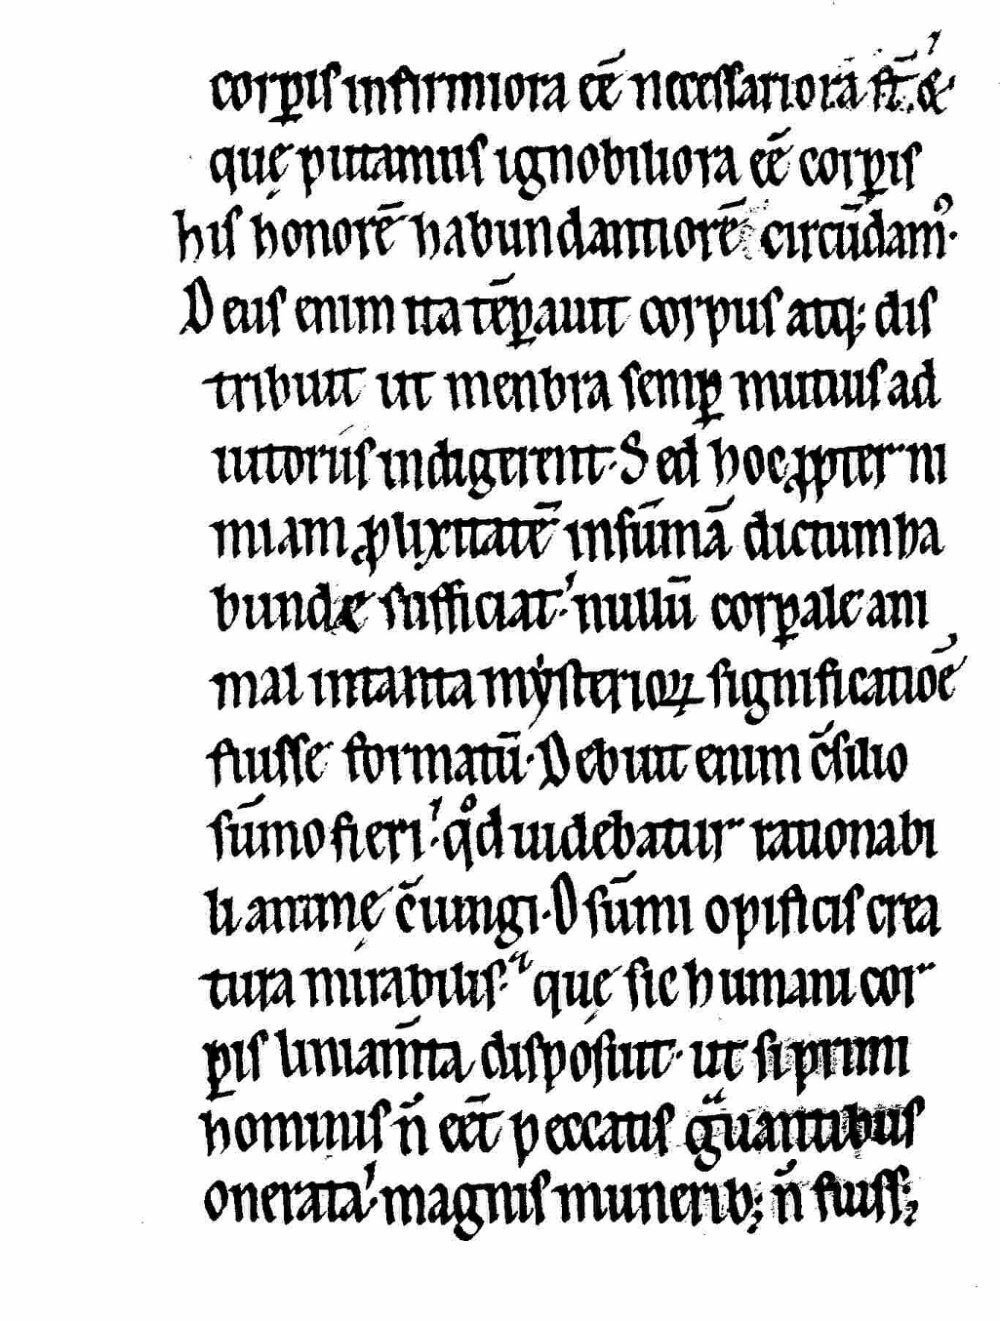 corꝑis infirmiora eē necessariora st̄. &
quę putamus ignobiliora eē corꝑis
his honorē habundantiorē circūdamꝰ.
Deus enim ita tēꝑauit corpus atq; dis
tribuit ut menbra semꝑ mutuis ad
iutoriis indigerent. Sed hoc ꝓpter ni
miam ꝓlixitatē in sūmā dictum ha
bunde sufficiat. nullū corꝑale ani
mal in tanta mysterioꝝ significatiōe
fuisse formatū. Debuit enim c̄silio
sūmo fieri. qͦd uidebatur rationabi
li animę c̄iungi. O sūmi opificis crea
tura mirabilis. quę sic humani cor
ꝑis liniam̄ta disposuit. ut si primi
hominis n̄ eēt peccatis g̃uantibus
onerata. magnis munerib; n̄ fuiss;